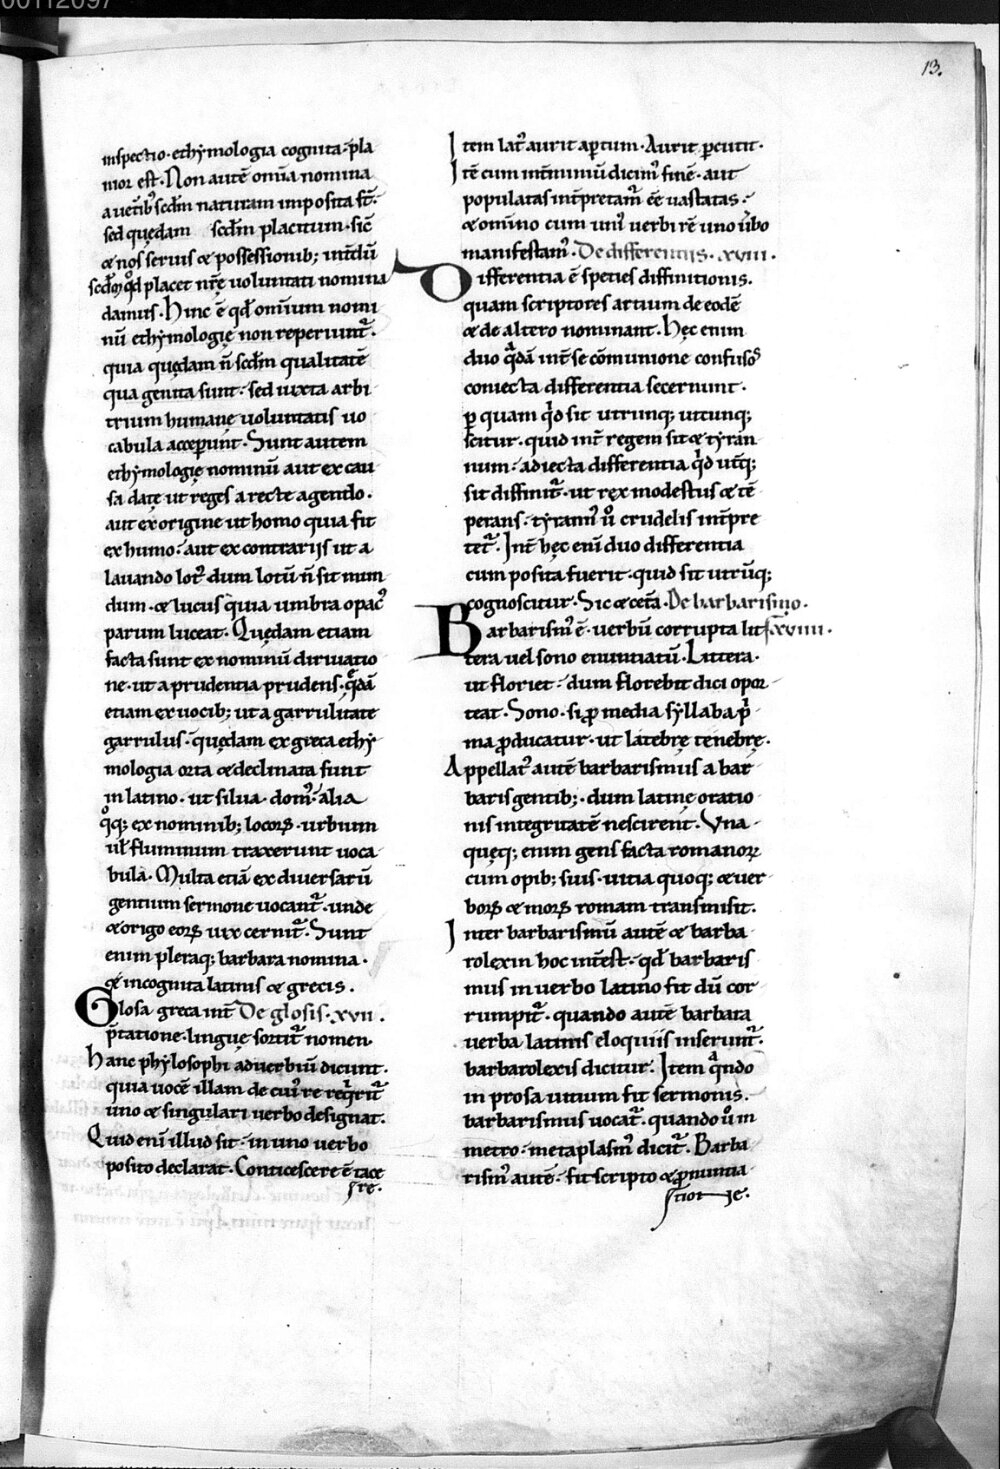 00112097
13.
inspectio· ethymologia cognita· pla
nior est· Non autē om̄ia nomina
a uetīb; scd̄m naturam imposita st̄·
sed quędam scd̄m placitum· sic̄
& nos seruis & possessionib; int̄dū
scd̄m qd̄ placet nr̄ę uoluntati nomina
damus· Hinc ē qd̄ omīum nomi
nū ethymologię non reperiunt̄·
quia quędam n̄ scd̄m qualitatē
qua genita sunt· sed iuxta arbi
trium humanę uoluntatis uo
cabula acceꝑunt· Sunt autem
ethymologię nominū aut ex cau
sa datę ut reges a recte agendo·
aut ex origine ut homo quia fit
ex humo· aut ex contrariis ut a
lauando lotꝰ dum lotū n̄ sit mun
dum· & lucus quia umbra opacꝰ
parum luceat· Quędam etiam
facta sunt ex nominū diriuatio
ne· ut a prudentia prudens· q̄dā
etiam ex uocib; ut a garrulitate
garrulus· quędam ex greca ethy
mologia orta & declinata sunt
in latino· ut silua· domꝰ· alia
qͦq; ex nominib; locoꝝ· urbium
ul̄ fluminum traxerunt uoca
bula· Multa etiā ex diuersarū
gentium sermone uocant̄· unde
& origo eoꝝ uix cernit̄· Sunt
enim pleraq; barbara nomina·
& incognita latinis & grecis·
Glosa greca int̄ De glosis· xvii·
p̄tatione· linguę sortit̄ nomen·
Hanc phylosophi aduerbiū dicunt·
quia uocē illam de cuiꝰ re req̇rit̄
uno & singulari uerbo designat·
Quid eni illud sit· in uno uerbo
posito declarat· Conticescere ē tace
re·
Item lat̄ aurit aꝑtum· Aurit ꝑcutit·
Itē cum int̄minū dicimꝰ finē· aut
populatas int̄pretamꝰ ēē uastatas·
& omīno cum uniꝰ uerbi rē uno ūbo
manifestamꝰ· De differentiis· xviii·
Differentia ē species diffinitionis·
quam scriptores artium de eodē
& de altero nominant· Hęc enim
duo q̄dā int̄ se cōmunione confusos
coniecta differentia secernunt·
ꝑ quam qd̄ sit utrunq; utrunq;
scitur· quid int̄ regem sit & tyran
num· adiecta differentia qd̄ utq;
sit diffinit̄· ut rex modestus & tē
perans· tyrannꝰ ū crudelis int̄pre
tet̄· Int̄ hęc eni duo differentia
cum posita fuerit· quid sit utrūq;
cognoscitur· Sic & cet̄a· De barbarismo·
Barbarismꝰ ē· uerbū corrupta lit xviiii·
tera uel sono enuntiatū· Littera·
ut floriet· dum florebit dici opor
teat· Sono· si ꝓ media syllaba p̄
ma ꝓducatur· ut latebrę tenebrę·
Appellat̄ autē barbarismus a bar
baris gentib;· dum latinę oratio
nis integritatē nescirent· Vna
quęq; enim gens facta romanoꝝ
cum opib; suis· uitia quoq; & uer
boꝝ & moꝝ romam transmisit·
Inter barbarismū autē & barba
rolexin hoc int̄est· qd̄ barbaris
mus in uerbo latino fit dū cor
rumpit̄· quando autē barbara
uerba latinis eloquiis inserunt̄·
barbarolexis dicitur· Item q̄ndo
in prosa uitium fit sermonis·
barbarismus uocat̄· quando ū in
metro· metaplasmꝰ dicit̄· Barba
rismꝰ autē· fit scripto & ꝓnuntia
tione·